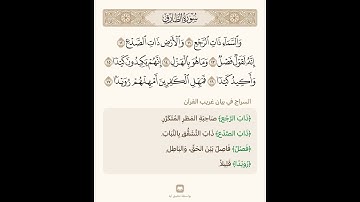 سُورَةُ الطَّارِقِ
وَالسَّمَاءِ ذَاتِ الرَّجْعِ ۝١١ وَالْأَرْضِ ذَاتِ الصَّدْعِ ۝١٢
إِنَّهُ لَقَوْلٌ فَصْلٌ ۝١٣ وَمَا هُوَ بِالْهَزْلِ ۝١٤ إِنَّهُمْ يَكِيدُونَ كَيْدًا ۝١٥
وَأَكِيدُ كَيْدًا ۝١٦ فَمَهِّلِ الْكَافِرِينَ أَمْهِلْهُمْ رُوَيْدًا ۝١٧
السراج في بيان غريب القرآن
﴿ذَاتِ الرَّجْعِ﴾ صَاحِبَةِ المَطَرِ المُتَكَرِّرِ.
﴿ذَاتِ الصَّدْعِ﴾ ذَاتِ التَّشَقُّقِ بِالنَّبَاتِ.
﴿فَصْلٌ﴾ فَاصِلٌ بَيْنَ الحَقِّ، وَالبَاطِلِ.
﴿رُوَيْدًا﴾ قَلِيلاً.